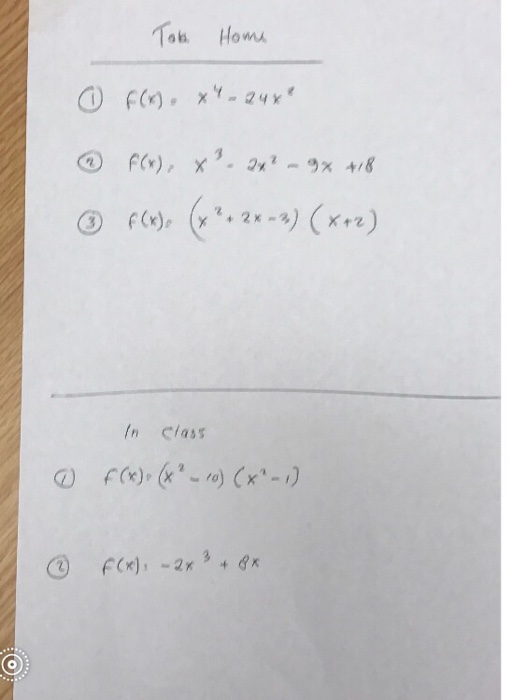 Take Home
① f(x) = x⁴ - 24x²
② f(x) = x³ - 2x² - 9x + 18
③ f(x) = (x² + 2x - 3) (x+2)
In class
① f(x) = (x² - 10) (x² - 1)
② f(x) = -2x³ + 8x